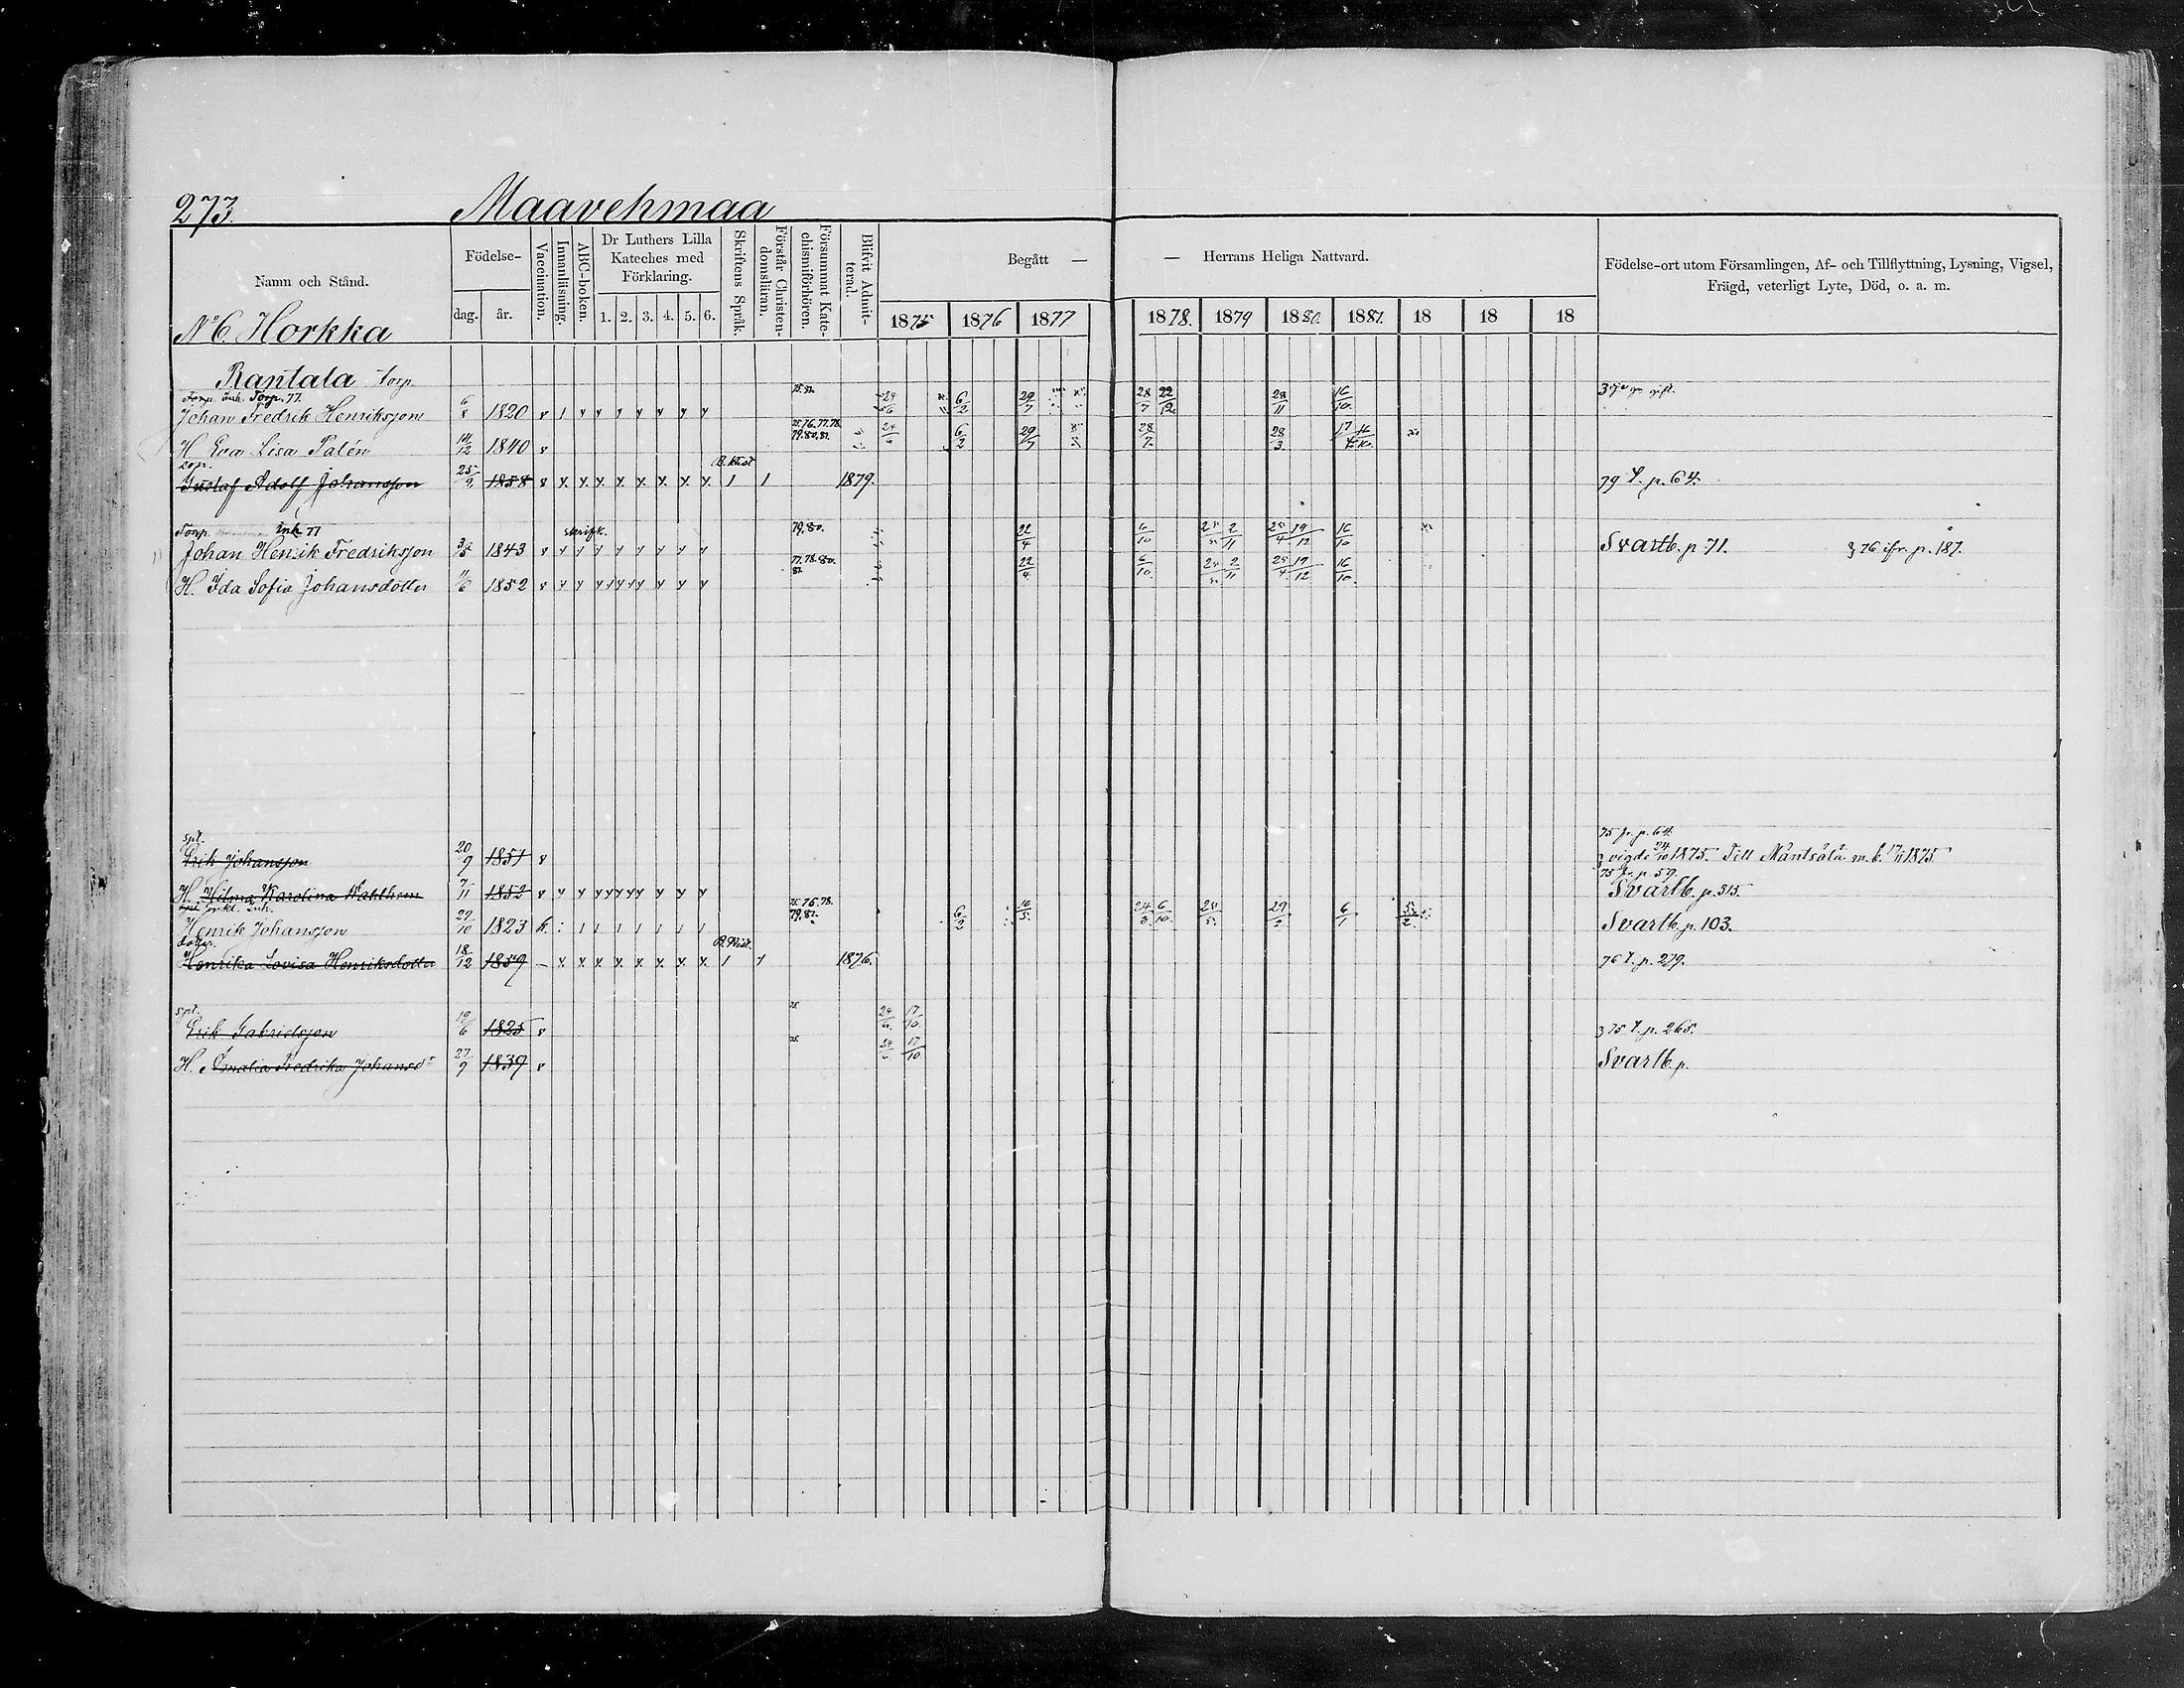 273. Maavehmaa
Namn och Stånd.
Födelse-
dag. år.
Vaccination.
Innanläsning.
ABC-boken.
Dr Luthers Lilla
Kateches med
Förklaring.
1. 2. 3. 4. 5. 6.
Skriftens Språk.
Förstår Christen-
domsläran.
Försummat Kate-
chismiförhören.
Blifvit Admit-
terad.
Begått — — Herrans Heliga Nattvard.
1875 1876 1877 1878. 1879 1880. 1881. 18 18 18
Födelse-ort utom Församlingen, Af- och Tillflyttning, Lysning, Vigsel,
Frägd, veterligt Lyte, Död, o. a. m.
No 6. Horkka
Rantala torp
Torp. 77.
Johan Fredrik Henriksson 6/8 1820 24/6 6/2 29/7 28/7 22/12 28/11 16/10 gift.
75 76. 77. 78. 79. 80. 81.
H Eva Lisa Palén 14/12 1840 24/6 6/2 29/7 28/7 28/3
Gustaf Adolf Johansson 1858 1 1 1879. 79 t. p. 64.
Torp. Inh. 77 skrifk. 79. 80.
Johan Henrik Fredriksson 1843 22/4 6/10 25/5 2/11 25/4 19/12 16/10 Svartb. p. 71. 76 ifr. p. 187.
77. 78. 80. 81
H. Ida Sofia Johansdotter 11/6 1852 22/4 6/10 25/5 2/11 25/4 19/12 16/10
spt. 75 fr. p. 64.
Erik Johansson 20/9 1851 vigde 24/10 1875. Till Mäntsälä m. b. 17/11 1875
75 fr. p. 59.
H. Hilma Karolina Wahlbom 7/11 1852 Svartb. p. 315.
Inh. 75 76. 78. 79. 81.
Henrik Johansson 27/10 1823 6/2 16/5 24/3 6/10 25/5 29/2 6/1 Svartb. p. 103.
dotter.
Henrika Lovisa Henriksdotter 18/12 1859 1876. 76 t. p. 279.
spt. 75
Erik Gabrielsson 19/6 1825 24/6 17/10 75 t. p. 265.
75
H. Amalia Fredrika Johansdr 27/9 1839 24/6 17/10 Svartb. p.